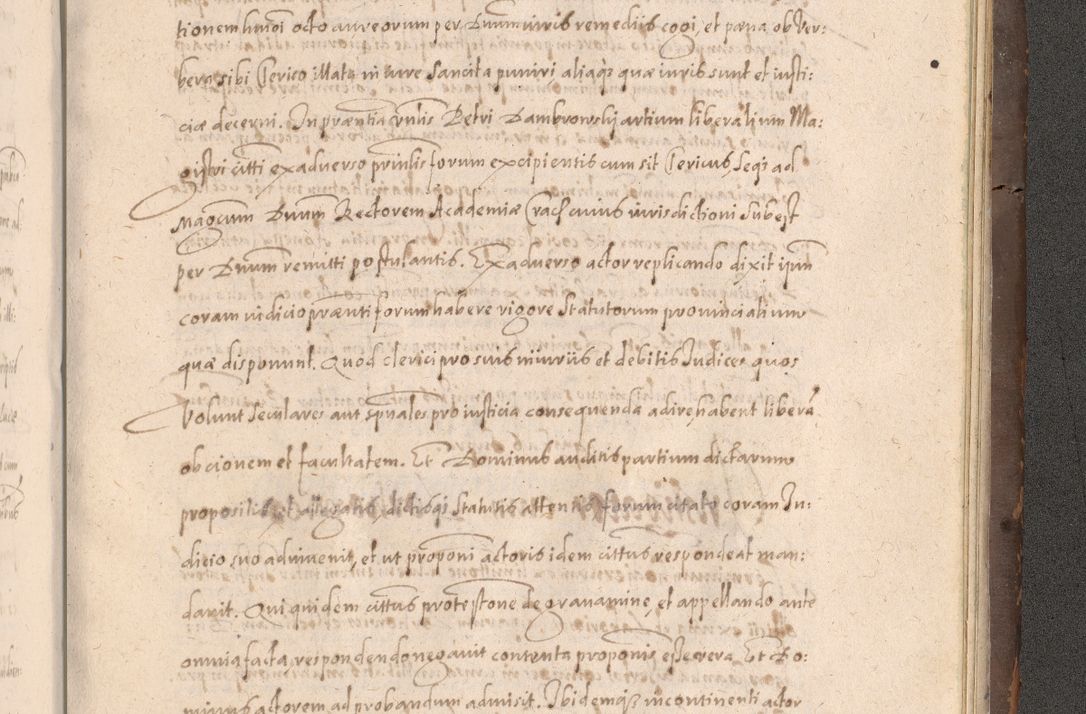 tionem hmoi octo aureorum per Dnum iuris remediis cogi, et pœna ob ver:
bera sibi Clerico illata in iure Sancita puniri aliaqz quæ iuris sunt et iusti:
ciæ decerni. In præntia vnlis Petri Dambrowskj artium liberalium Ma:
gistri citti ex aduerso prinlis forum excipientis cum sit Clericus, seqz ad
Magcum Dnum Rectorem Academiæ Crac cuius iurisdictioni subest
per Dnum remitti postulantis. Ex aduerso actor replicando dixit ipm
coram iudicio prænti forum habere vigore Statutorum prouincialium
quæ disponunt. Quod clerici pro suis iniuriis et debitis Iudices quos
Volunt seculares aut spuales pro iusticia consequenda adire habent liberã
obcionem et facultatem. Et Dominus auditis partium dictarum
propositis et allegatis, dictisqz Statutis attentis forum citato coram Iu:
dicio suo adiuuenit, et ut proponi actoris idem cittus respondeat man:
dauit. Qui quidem cittus protestone de grauamine, et appellando ante
omnia facta, respondendo negauit contenta proponis esse vera. Et Do:
minus actorem ad probandum admisit. Ibidemqz incontinenti actor